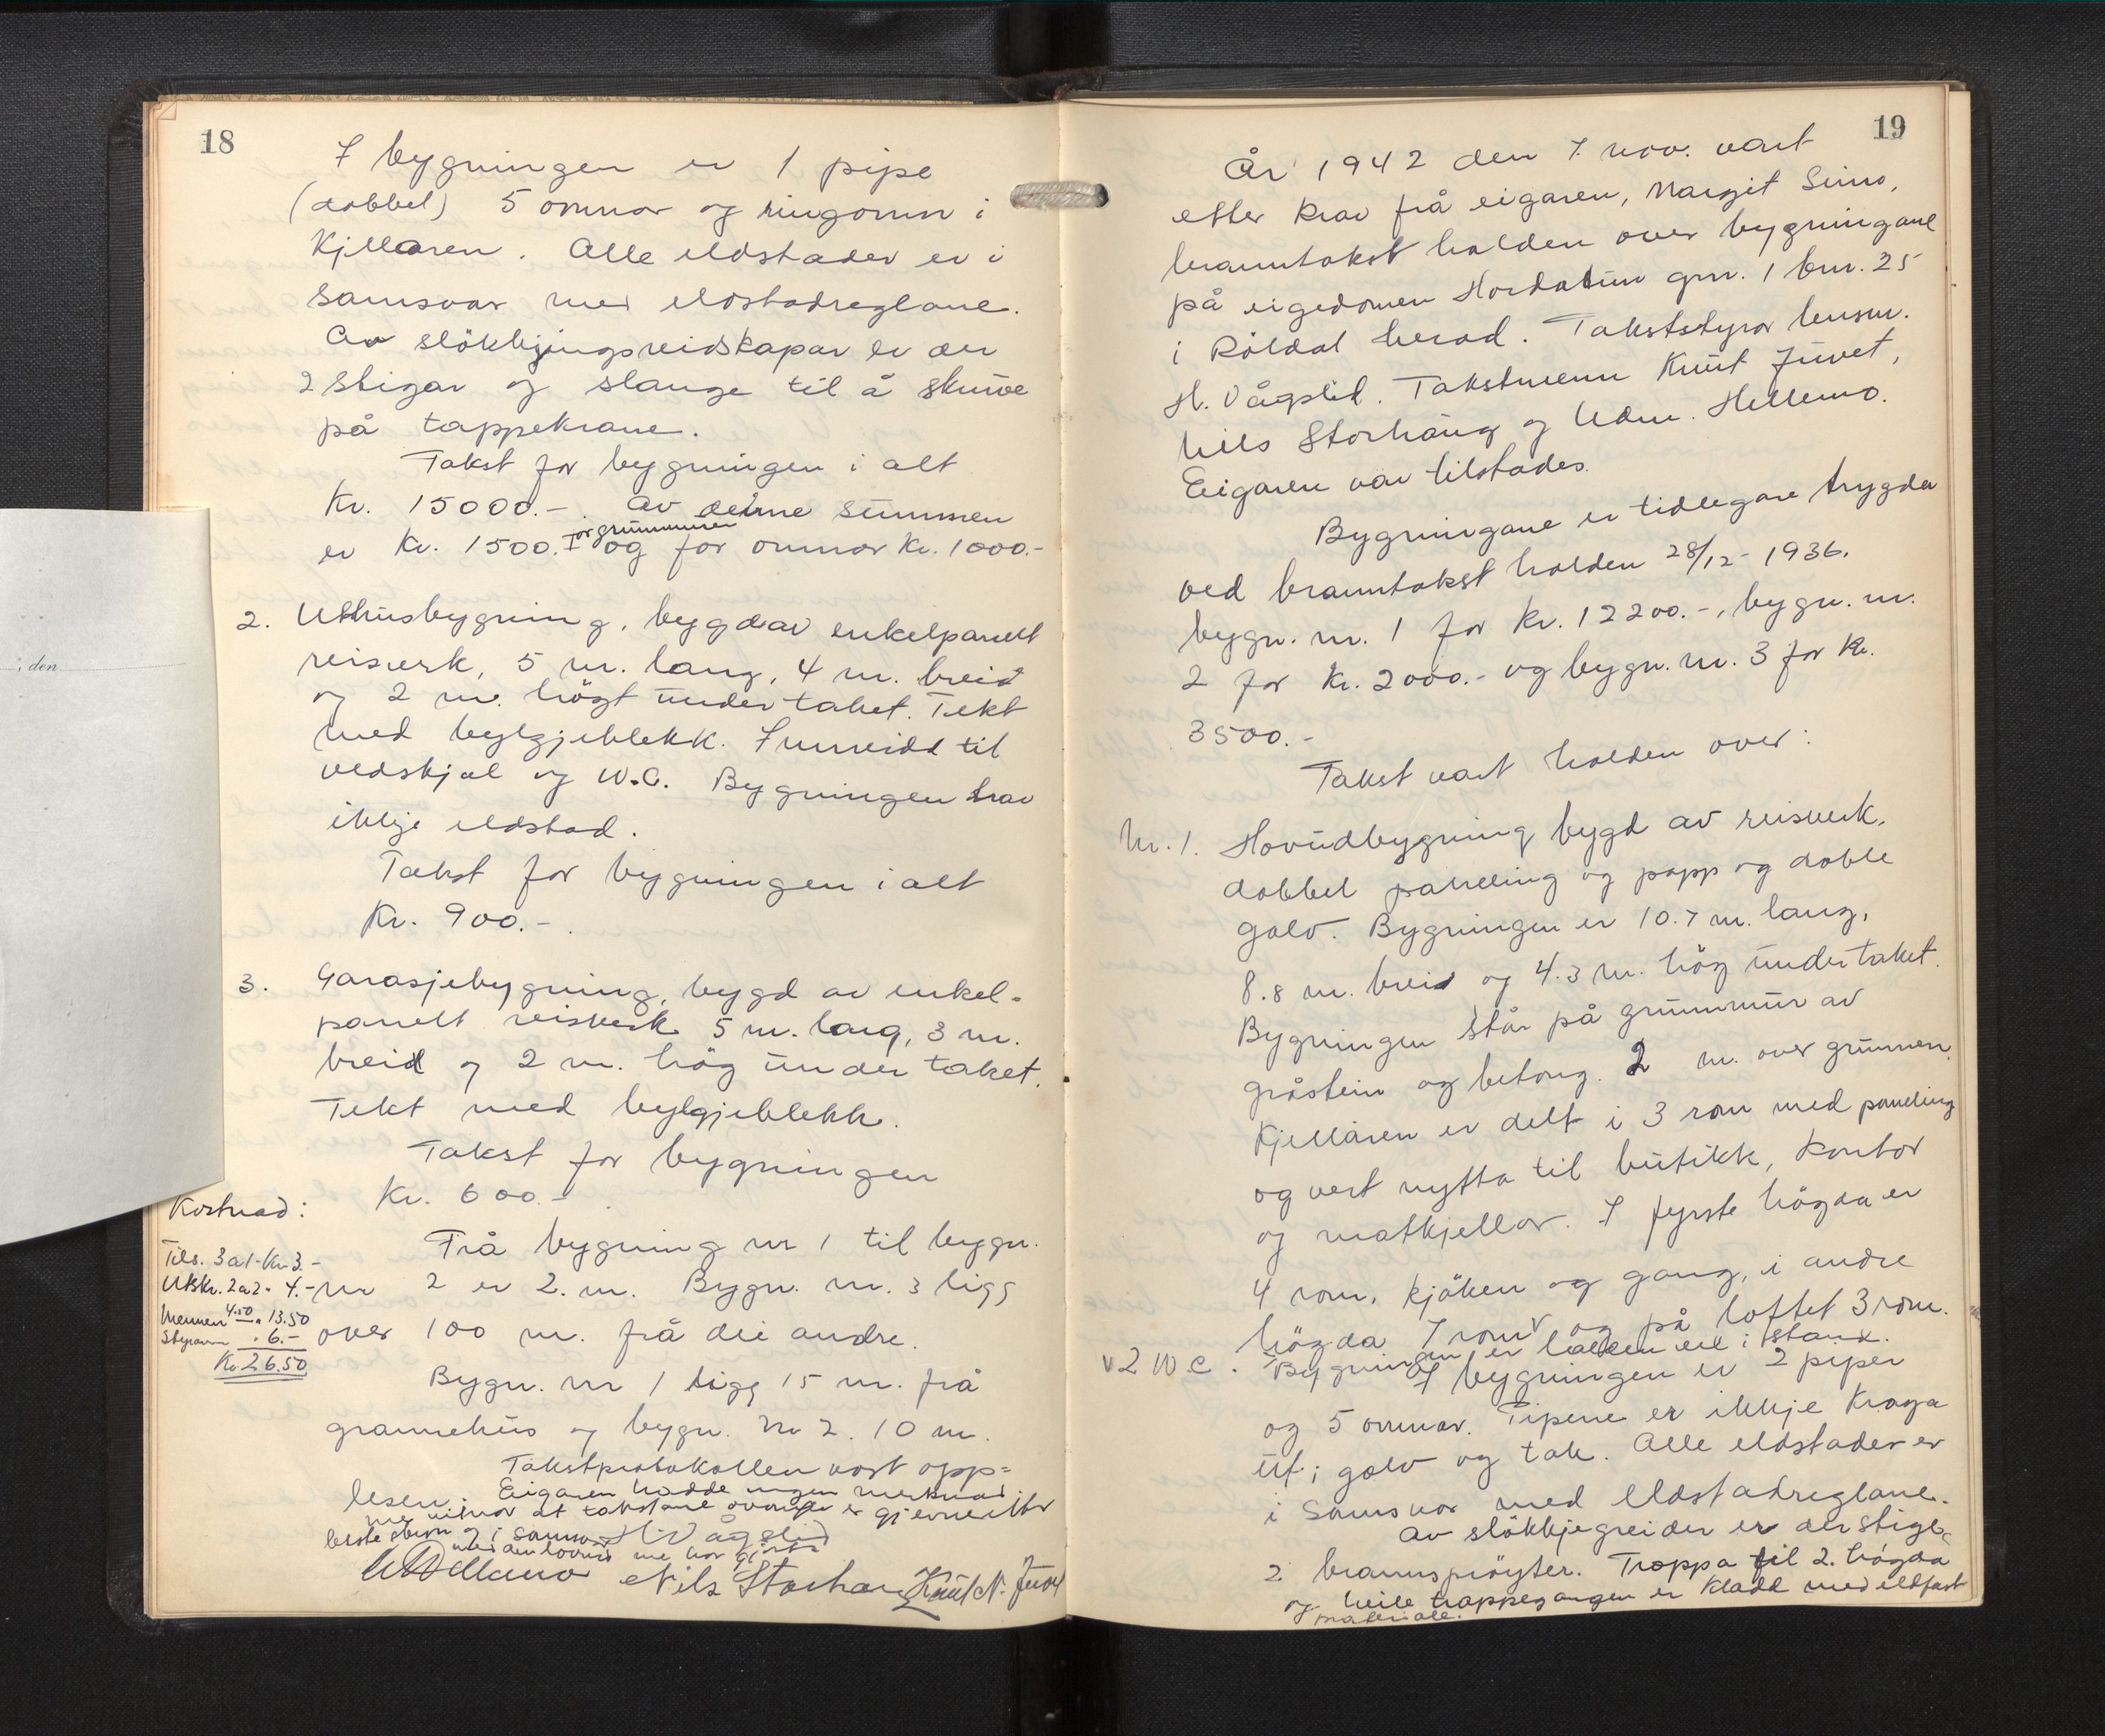 18
I bygningen er 1 pipe
(dobbel) 5 omnar og ringomn i
Kjellaren. Alle eldstader er i
samsvar med eldstadreglane.
Av slökkjingsreidskapar er der
2 stigar og slange til å skruve
på tappekrane.
Takst for bygningen i alt
Kr. 15000.-. Av denne summen
for grunnmuren
er Kr. 1500.- og for omnar Kr. 1000.-
2. Uthusbygning, bygd av enkelpanelt
reisverk, 5 m. lang, 4 m. breid
og 2 m. högt under taket. Tekt
med bylgjeblekk. Innreidd til
vedskjul og W.C. Bygningen har
ikkje eldstad.
Takst for bygningen i alt
Kr. 900.-
3. Garasjebygning, bygd av enkel-
panelt reisverk 5 m. lang, 3 m.
breid og 2 m. hög under taket.
Tekt med bylgjeblekk.
Takst for bygningen
Kr. 600.-
Frå bygning nr 1 til bygn.
nr 2 er 2. m. Bygn. nr. 3 ligg
over 100 m. frå dei andre.
Bygn. nr 1 ligg 15 m. frå
grannehus og bygn. Nr 2. 10 m.
Takstprotokollen vart opp=
lesen. Eigaren hadde ingen merknad
me vitnar at takstane ovanfor er gjevne etter
beste skjøn og i samsvar H. Vågslid
med den lovnad me har gjort.
U Hellemo Nils Storhaug Knut N. Juvet
, den
Kostnad:
Tils. 3 a 1 - Kr 3.-
Utskr. 2 a 2 - 4.-
Mennene 4.50 - 13.50
Styraren - 6.-
Kr 26.50
19
År 1942 den 7. nov. vart
etter krav frå eigaren, Margit Seim,
branntakst halden over bygningane
på eigedomen Hordatun gnr. 1 bnr. 25
i Röldal herad. Takststyrar lensm.
H. Vågslid. Takstmenn Knut Juvet,
Nils Storhaug og Udm. Hellemo.
Eigaren var tilstades.
Bygningane er tidlegare trygda
ved branntakst halden 28/12 - 1936.
bygn. nr. 1 for Kr. 12200.-, bygn. nr.
2 for Kr. 2000.- og bygn. nr. 3 for Kr.
3500.-
Takst vart halden over:
Nr. 1. Hovudbygning bygd av reisverk,
dobbel paneling og papp og doble
golv. Bygningen er 10.7 m. lang,
8.8 m. breid og 4.3 m. hög under taket.
Bygningen står på grunnmur av
gråstein og betong. 2 m. over grunnen.
Kjellaren er delt i 3 rom med paneling
og vert nytta til butikk, kontor
og matkjellar. I fyrste högda er
4 rom, kjöken og gang, i andre
högda 7 rom v og på loftet 3 rom.
v 2 W.C. Bygningen er halden vel i stand.
I bygningen er 2 piper
og 5 omnar. Pipene er ikkje Kraga
ut i golv og tak. Alle eldstader er
i samsvar med Eldstadreglane.
Av slökkjegreider er der stige,
2 brannspröyter. Trappa til 2. högda
og heile trappegangen er kledd med eldfast
materiale.